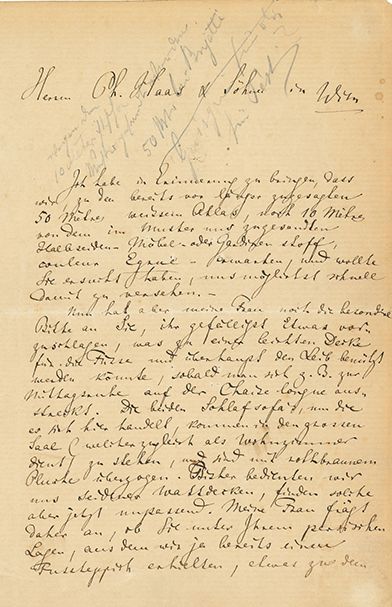 Herren Ph. Haas & Söhne in Wien
50 Mtr
für
Ich habe in Erinnerung zu bringen, dass
wir, zu den bereits vor länger zugesagten
50 Mètres weissem Atlas, noch 10 Mètres
von dem im Muster uns zugesandten
Halbseiden-Möbel- oder Gardinen stoff,
couleur - erwarten, und wollte
Sie ersucht haben, uns möglichst schnell
damit zu versehen. -
Nun hat aber meine Frau noch die besondere
Bitte an Sie, ihr gefälligst Etwas vor-
zuschlagen, was zu einer leichten Decke
für die Füsse und überhaupt den Leib benützt
werden könnte, sobald man sich z. B. zur
Mittagsruhe auf der Chaise longue aus-
streckt. Die beiden Schlafsofa's, um die
es sich hier handelt, kommen in den grossen
Saal (welcher zugleich als Wohnzimmer
dient) zu stehen, und sind mit rothbraunem
Plüsche überzogen. Bisher bedienten wir
uns seidener Wattdecken, finden solche
aber jetzt unpassend. Meine Frau frägt
daher an, ob Sie unter Ihrem persischen
Lager, aus dem wir ja bereits einen
Fussteppich erhielten, etwas zu dem